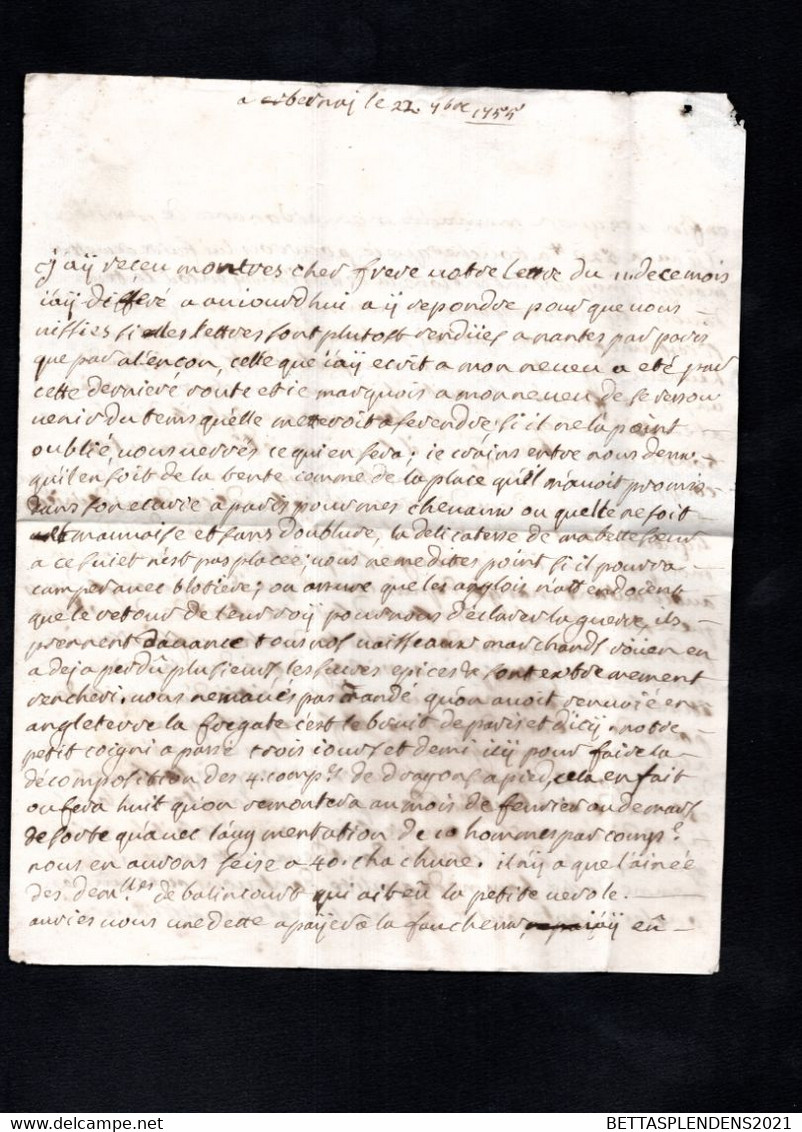 le 22 9bre 1755
J'aÿ receu mon tres cher frere votre lettre du 11 de ce mois
i'aÿ differé a auiourdhui a ÿ repondre pour que vous
vissiés si les lettres sont plutost rendües a nantes par paris
que par alençon, celle que i'aÿ ecrit a mon neveu a eté par
cette derniere route et ie marquois a mon neveu de se ressou
venir du tems qu'elle metteroit a se rendre; si il ne l'a point
oublié, vous verrés ce qui en sera; ie crains entre nous deux
qu'il en soit de la tente comme de la place qu'il m'avoit promis
dans son ecurie a paris pour mes chevaux ou qu'elle ne soit
mauvaise et sans doublure, la delicatesse de ma belle sœur
a ce suiet n'est pas placée; vous ne me dites point si il pourra
camper avec blotiere; on assure que les anglois n'attendoient
que le retour de leur roÿ pour nous déclarer la guerre, ils
prennent d'avance tous nos vaisseaux marchands roüen en
a deja perdû plusieurs, les sucres epices &c sont extremement
rencheri. vous ne m'avés pas mandé qu'on avoit renvoié en
angleterre la fregate c'est le bruit de paris et d'icÿ. notre
petit coigni a passé trois iours et demi icÿ pour faire la
décomposition des 4. comp.es de dragons a pied, cela en fait
ou fera huit qu'on remontera au mois de fevrier ou de mars
de sorte qu'avec l'augmentation de 10 hommes par comp.e
nous en aurons seise a 40. chachune. il n'ÿ a que l'ainée
des dem.lles de balincourt qui ait eü la petite verole.
auriés vous une dette a païer a la faucheux, i'aÿ eû
BETTASPLENDENS2021